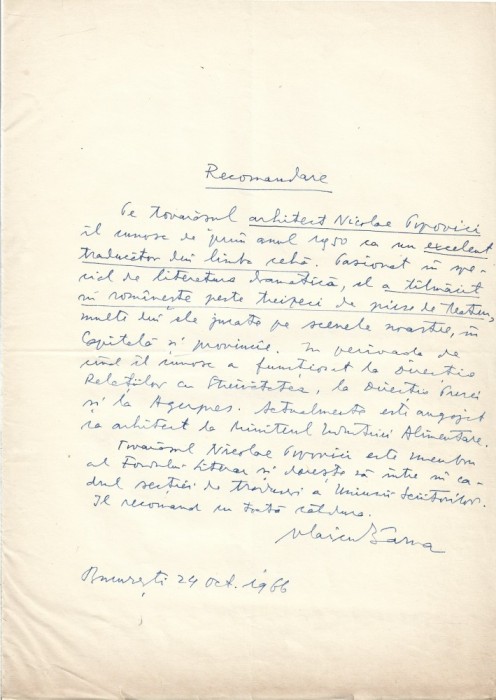 Recomandare
Pe tovarășul arhitect Nicolae Popovici
îl cunosc de prin anul 1950 ca un excelent
traducător din limba cehă. Pasionat în spe-
cial de literatura dramatică, el a tălmăcit
în românește peste treizeci de piese de teatru,
multe din ele jucate pe scenele noastre, în
Capitală și provincie. În perioada de
când îl cunosc a funcționat la Direcția
Relațiilor cu Străinătatea, la Direcția Presei
și la Agerpres. Actualmente este angajat
ca arhitect la Ministerul Industriei Alimentare.
Tovarășul Nicolae Popovici este membru
al Fondului Literar și dorește să intre în ca-
drul secției de traduceri a Uniunii Scriitorilor.
Îl recomand cu toată căldura.
Vlaicu Bârna
București 24 oct. 1966